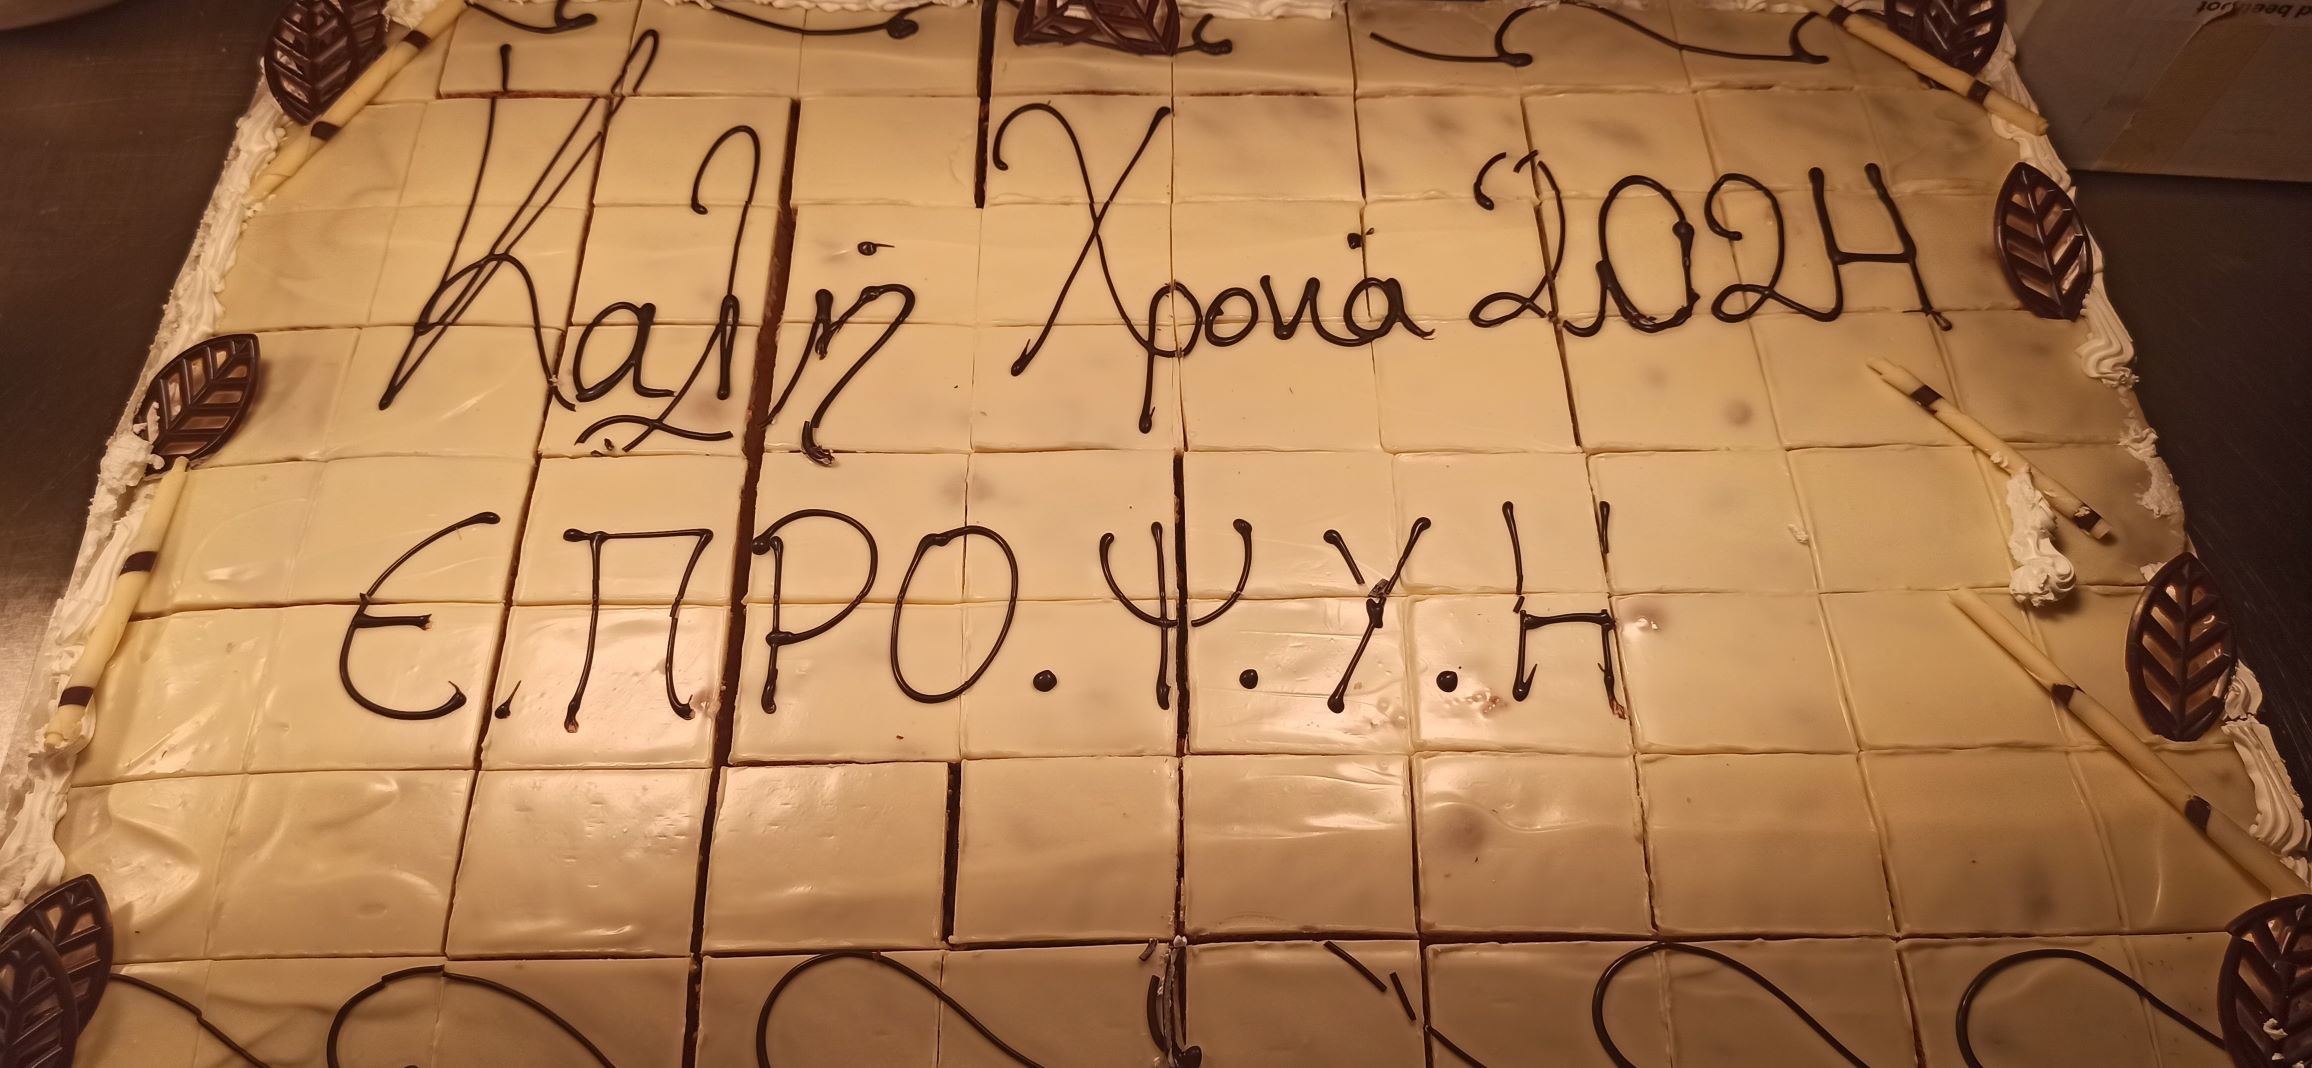 Καλή Χρονιά 2024
Ε.ΠΡΟ.Ψ.Υ.Η